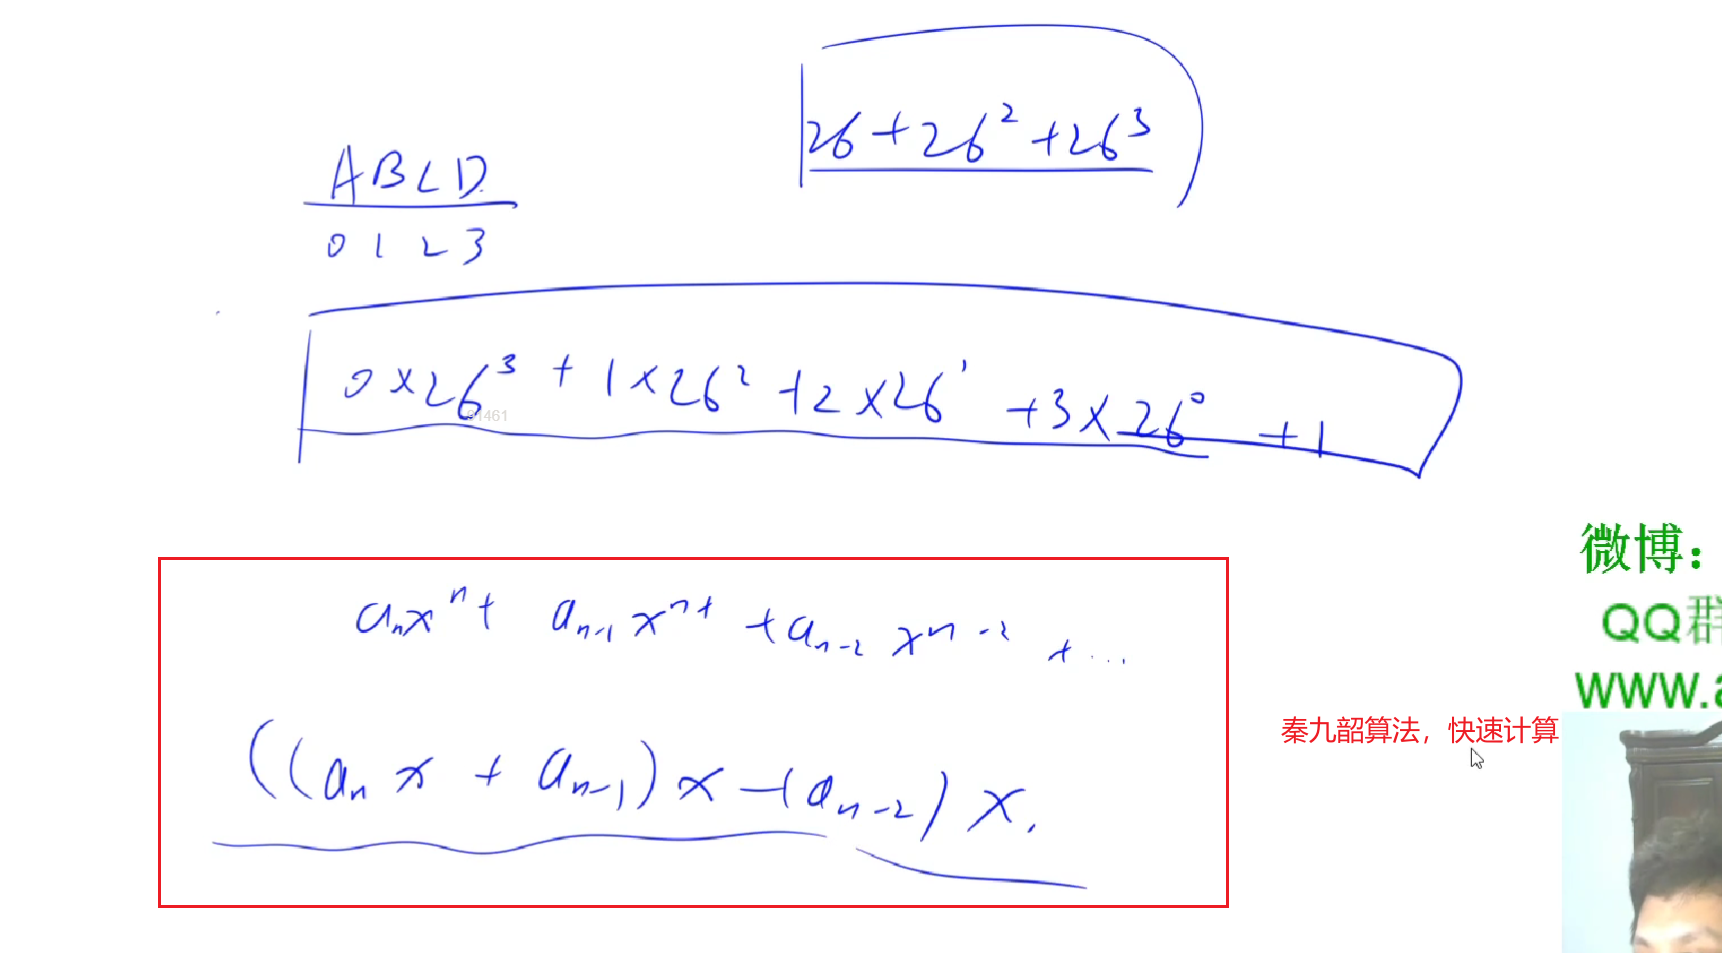 26+26²+26³
ABCD
0 1 2 3
0×26³ + 1×26² +2×26¹ +3×26⁰ +1
91461
aₙxⁿ+ aₙ₋₁xⁿ⁻¹ +aₙ₋₂xⁿ⁻² + ...
((aₙx + aₙ₋₁)x+aₙ₋₂)x.
秦九韶算法，快速计算
微博：
QQ群
www.a